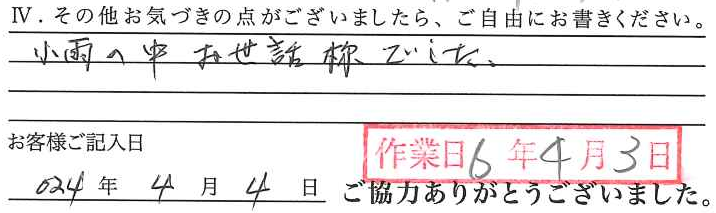 Ⅳ．その他お気づきの点がございましたら、ご自由にお書きください。
小雨の中 お世話様でした。
お客様ご記入日
作業日6年4月3日
024年 4月 4日 ご協力ありがとうございました。